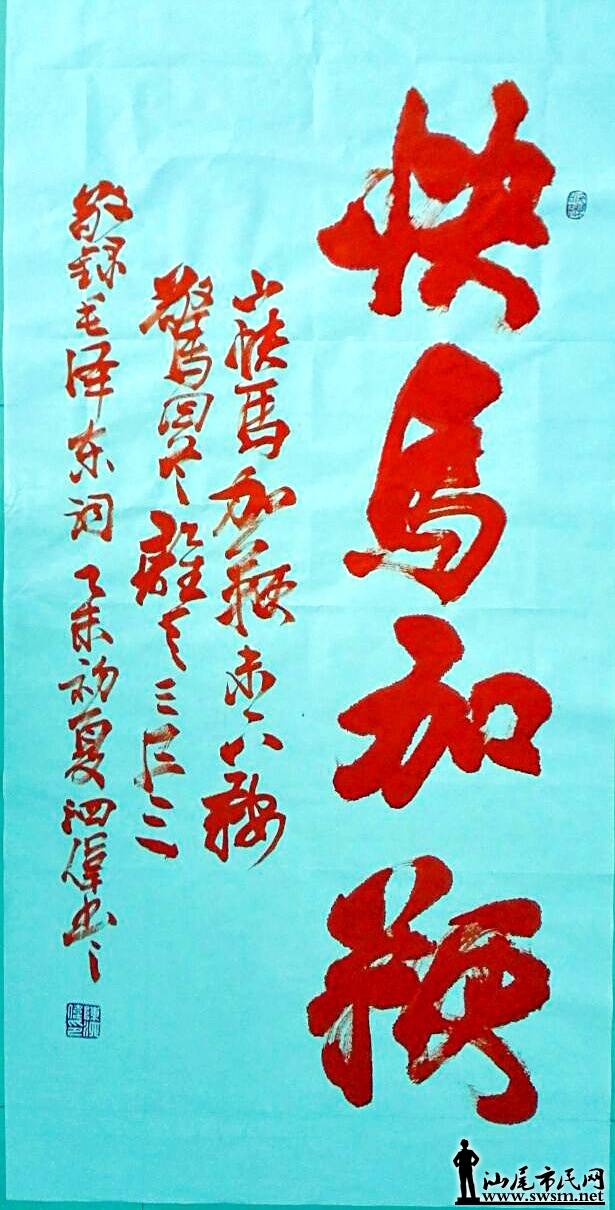 快馬加鞭
山快馬加鞭未下鞍
驚回首離天三尺三
敬録毛泽东词 乙未初夏泗偉书
汕尾市民网
www.swsm.net